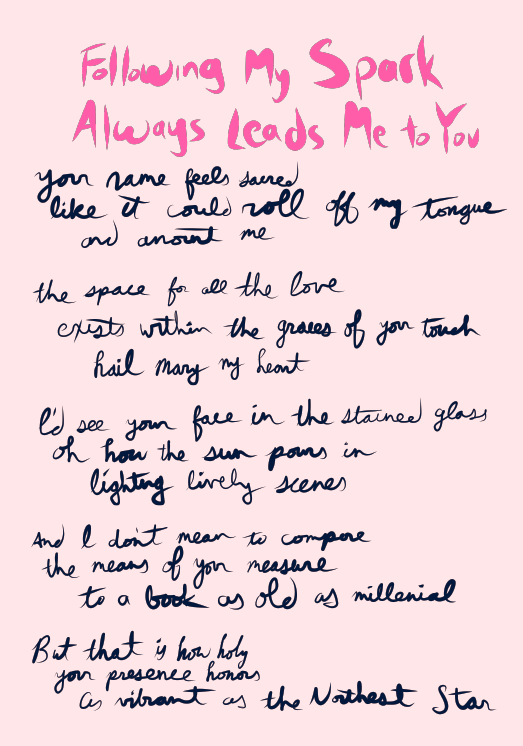 Following My Spark
Always Leads Me to You
Your name feels sacred
like it could roll off my tongue
and anoint me
the space for all the love
exists within the graces of your touch
hail mary my heart
I'd see your face in the stained glass
oh how the sun pours in
lighting lively scenes
And I don't mean to compare
the means of your measure
to a book as old as millenial
But that is how holy
your presence honors
as vibrant as the Northest Star